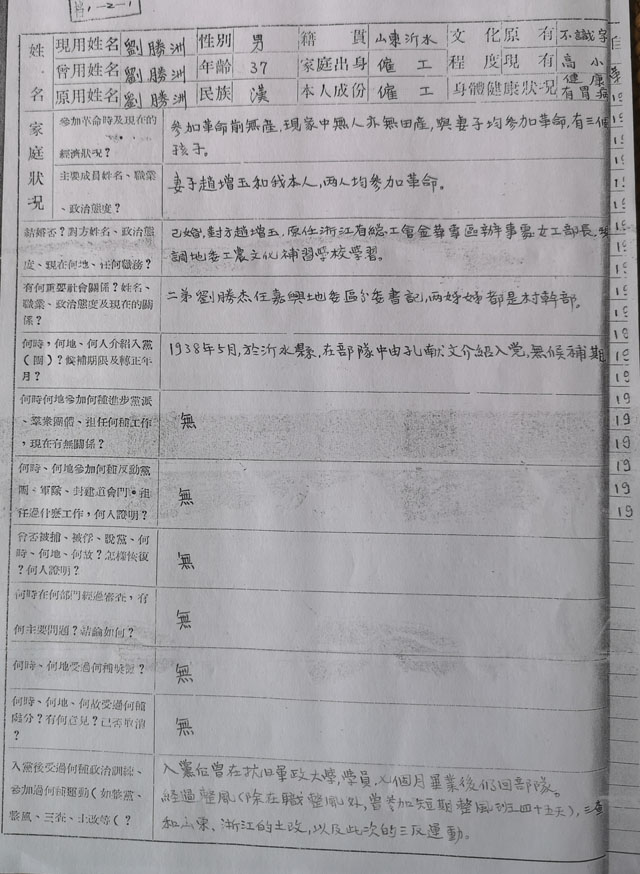 1-2-1
姓名 現用姓名 劉勝洲 性別 男 籍貫 山東沂水 文化程度 原有 不識字
曾用姓名 劉勝洲 年齡 37 家庭出身 僱工 現有 高小
原用姓名 劉勝洲 民族 漢 本人成份 僱工 身體健康狀況 健康 有胃病
家庭狀況
參加革命時及現在的
經濟狀況？
參加革命前無產，現家中無人亦無田產，與妻子均參加革命，有三個
孩子。
主要成員姓名、職業
、政治態度？
妻子趙增玉和我本人，兩人均參加革命。
結婚否？對方姓名、政治態
度、現在何地、任何職務？
已婚，對方趙增玉，原任浙江省總工會金華專區辦事處女工部長，
調地委工農文化補習學校學習。
有何重要社會關係？姓名、
職業、政治態度及現在的關
係？
二弟劉勝杰任嘉興地委區分委書記，兩姊妹都是村幹部。
何時，何地、何人介紹入黨
（團）？候補期限及轉正年
月？
1938年5月，於沂水縣，在部隊中由孔献文介紹入党，無候補期
何時何地參加何種進步黨派
、羣衆團體、担任何種工作
，現在有無關係？
無
何時、何地參加何種反動黨
團、軍隊、封建道會門·担
任過什麼工作，何人證明？
無
曾否被捕、被俘、脫黨、何
時、何地、何故？怎樣恢復
？何人證明？
無
何時在何部門經過審查，有
何主要問題？結論如何？
無
何時、何地受過何種獎勵？
無
何時、何地、何故受過何種
處分？有何意見？已否取消
？
無
入黨後受過何種政治訓練、
參加過何種運動（如整黨、
整風、三查、土改等（？
入黨后曾在抗日軍政大學，學員，七個月畢業後仍回部隊。
經過整風（除在職整風外，曾參加短期整風班四十五天），三查
和山東、浙江的土改，以及此次的三反運動。
自
19
19
19
19
19
19
19
19
19